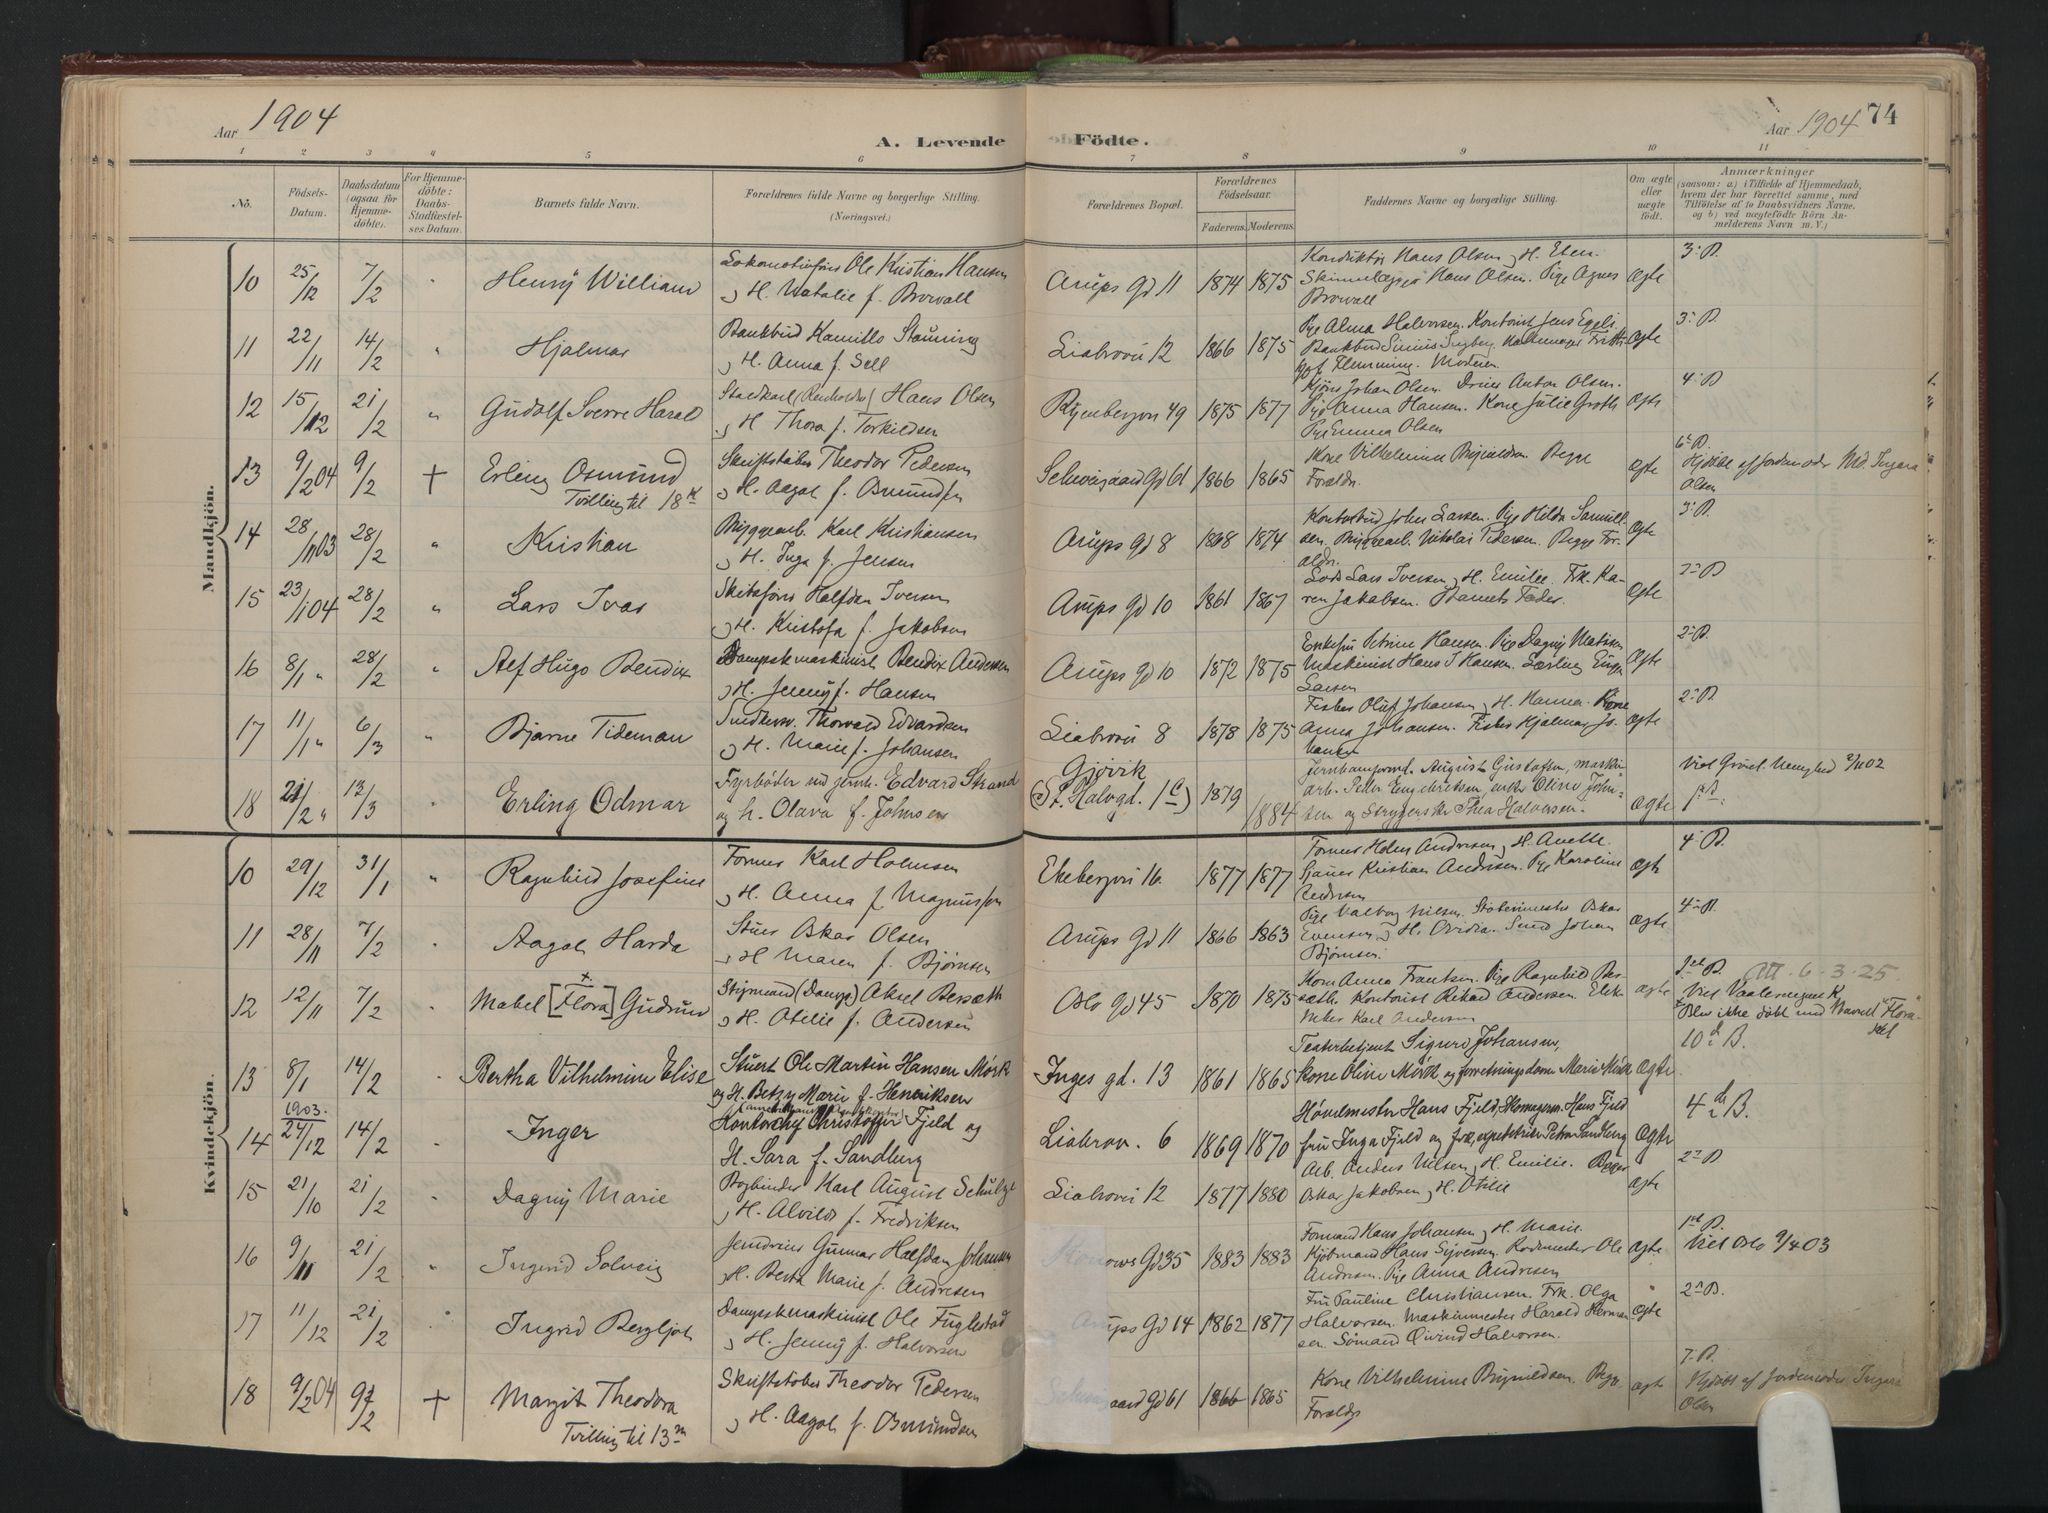 Aar 1904
A. Levende Födte.
Aar 1904 74
1 2 3 4 5 6 7 8 9 10 11
No.
Födsels-Datum.
Daabsdatum (ogsaa for Hjemmedöbte).
For Hjemmedöbte: Daabs-Stadfæstelses Datum.
Barnets fulde Navn.
Forældrenes fulde Navne og borgerlige Stilling. (Næringsvei.)
Forældrenes Bopæl.
Forældrenes Födselsaar.
Faderens. Moderens.
Faddernes Navne og borgerlige Stilling.
Om ægte eller uægte födt.
Anmærkninger
(saasom: a) i Tilfælde af Hjemmedaab, hvem der har forrettet samme, med Tilföielse af to Daabsvidners Navne, og b) ved uægtefödte Börn Anmelderens Navn m. V.)
Mandkjön.
10 25/12 7/2 " Henry William
Lokomotivførs Ole Kristian Hansen
og H. Natalie f. Browall
Arups Gd 11 1874 1875
Konduktør Hans Olsen og H. Ellen.
Hans Olsen. Pige Agnes
Browall
Ægte 3. B.
11 22/11 14/2 " Hjalmar
Bankbud Kamillo Stauning
og H. Anna f. Sell
Liabrovn 12 1866 1875
Pige Alma Halvorsen. Kontorist Jens
Bankbud
Flemming. Moderen
Ægte 3. B.
12 15/12 21/2 " Gudolf Sverre Harald
Staldkarl (Renholdsv) Hans Olsen
og H Thora f. Torkildsen
Ryenbergvn 49 1875 1877
Johan Olsen. Anton Olsen.
Pige Anna Hansen. Kone Julie Groth
Pige Emma Olsen
Ægte 4. B
13 9/2 04 9/2 + Erling Osmund
Tvilling til 18 k
Skriftstøber Theodor Pedersen
og H. Aagot f. Osmundsen
Schweigaard Gd 61 1866 1865
Kone Vilhelmine Brynildsen. Begge
Foraldr.
Ægte 6. B.
Hjdøbt af Jordemoder Md. Ingara
Olsen
14 28/11 03 28/2 " Kristian
Bryggearb. Karl Kristiansen
og H. Inga f. Jensen
Arups Gd 8 1868 1874
Kontorbud John Larsen. Pige Hilda Samuel-
sen. Bryggearb. Nikolai Pedersen. Begge For-
aldr.
Ægte 3. B.
15 23/1 04 28/2 " Lars Ivar
Halfdan Iversen
og H. Kristofa f. Jakobsen
Arups Gd 10 1861 1867
Lods Lars Iversen og H. Emilie. Frk. Ka-
ren Jakobsen. Barnets Fader.
Ægte B
16 8/1 " 28/2 " Alf Hugo Bendix
Dampskmaskinist Bendix Andersen
og H. Jenny f. Hansen
Arups Gd 10 1872 1875
Enkefru Petrine Hansen. Pige Dagny Madsen
Maskinist Hans J Hansen. Lærling
Larsen
Ægte 2. B.
17 11/1 " 6/3 " Bjarne Tideman
Snedkersv. Thorvald Edvardsen
og H. Marie f. Johansen
Liabrovn 8 1878 1875
Fisker Oluf Johansen og H. Hanna. Kone
Anna Johansen. Fisker Hjalmar Jo-
hansen
Ægte 2. B.
18 21/2 " 13/3 " Erling Odmar
Fyrbøder ved jernb. Edvard Strand
og h. Olava f. Johnsen
Gjøvik
(St. Halvgd. 1 c) 1879 1884
Jernbaneformd. August Gustafsen, maskin-
arb. Peter Engebretsen, enke Oline John-
sen og Strygerske Thea Halvorsen.
Ægte Viet Grøn. Menighed 2/11 02
1ste B.
Kvindekjön.
10 29/12 31/1 " Ragnhild Josefine
Former Karl Holmsen
og H. Anna f. Magnussen
Ekebergvn 16. 1877 1877
Former Andresen og H. Anette
Kristian Andresen. Pige Karoline
Andresen
Ægte 4. B.
11 28/11 7/2 " Aagot Harda
Stuer Oskar Olsen
og H Maren f. Bjørnsen
Arups Gd 11 1866 1863
Pige Valborg Nilsen. Støberimester Oskar
Evensen og H. Ovidia. Smed Johan
Bjørnsen.
Ægte 4. B.
12 12/11 7/2 " Mabel [Flora] + Gudrun
Styrmand (Damps) Aksel Bersæth
og H. Otilie f. Andersen
Oslo Gd 45 1870 1875
Anna Frantsen. Pige Ragnhild Ber-
sæth. Kontorist Rikard Andersen. Elek-
triker Karl Andersen
Ægte B. Att. 6-3-25.
Viet Vaalerengens K.
+ Blev ikke døbt med Navnet "Flora"
13 8/1 14/2 " Bertha Vilhelmine Elise
Stuert Ole Martin Hansen Mörk
og H. Betzy Marie f. Henriksen
Inges gd. 13 1861 1865
Teaterbetjent Sigurd Johansen,
kone Oline Mörk og forretningsdame Marie Mörk
Ægte 10de B.
14 1903. 24/12 14/2 " Inger
Kontorchef Christoffer Fjeld og
H. Sara f. Sandberg
Liabrov. 6 1869 1870
Høvelmester Hans Fjeld, Skomagerm. Hans Fjeld
fru Inga Fjeld og frk. expeditrice Petra Sandberg
Ægte 4de B.
15 21/10 21/2 " Dagny Marie
Bogbinder Karl August Schultz
og H. Alvilde f. Fredriksen
Liabrovn 12 1877 1880
Arb. Anders Nilsen og H. Emilie. Bager
Oskar Jakobsen og H. Otilie
Ægte 2. B
16 9/11 21/2 " Ingrid Solveig
Gunnar Halfdan Johansen
og H. Berta Marie f. Andresen
Gd 35 1883 1883
Formand Hans Johansen og H. Marie.
Kjøbmand Hans Syversen. Rodemester Ole
Andresen. Pige Anna Andresen
Ægte 1ste B.
Viet Oslo 9/4 03
17 11/12 21/2 " Ingrid Bergljot
Dampskmaskinist Ole Fuglestad
og H. Jenny f. Halvorsen
Arups Gd 14 1862 1877
Fru Pauline Christiansen. Frk. Olga
Halvorsen. Maskinmester Harald Herman-
sen. Sømand Øivind Halvorsen.
Ægte 2. B.
18 9/2 04 9/2 + Margit Theodora
Tvilling til 13 m
Skriftstøber Theodor Pedersen
og H. Aagot f. Osmundsen
Schweigaard Gd 61 1866 1865
Kone Vilhelmine Brynildsen. Begge
Foraldr
Ægte 7. B.
Hjdøbt af Jordemoder Ingara
Olsen